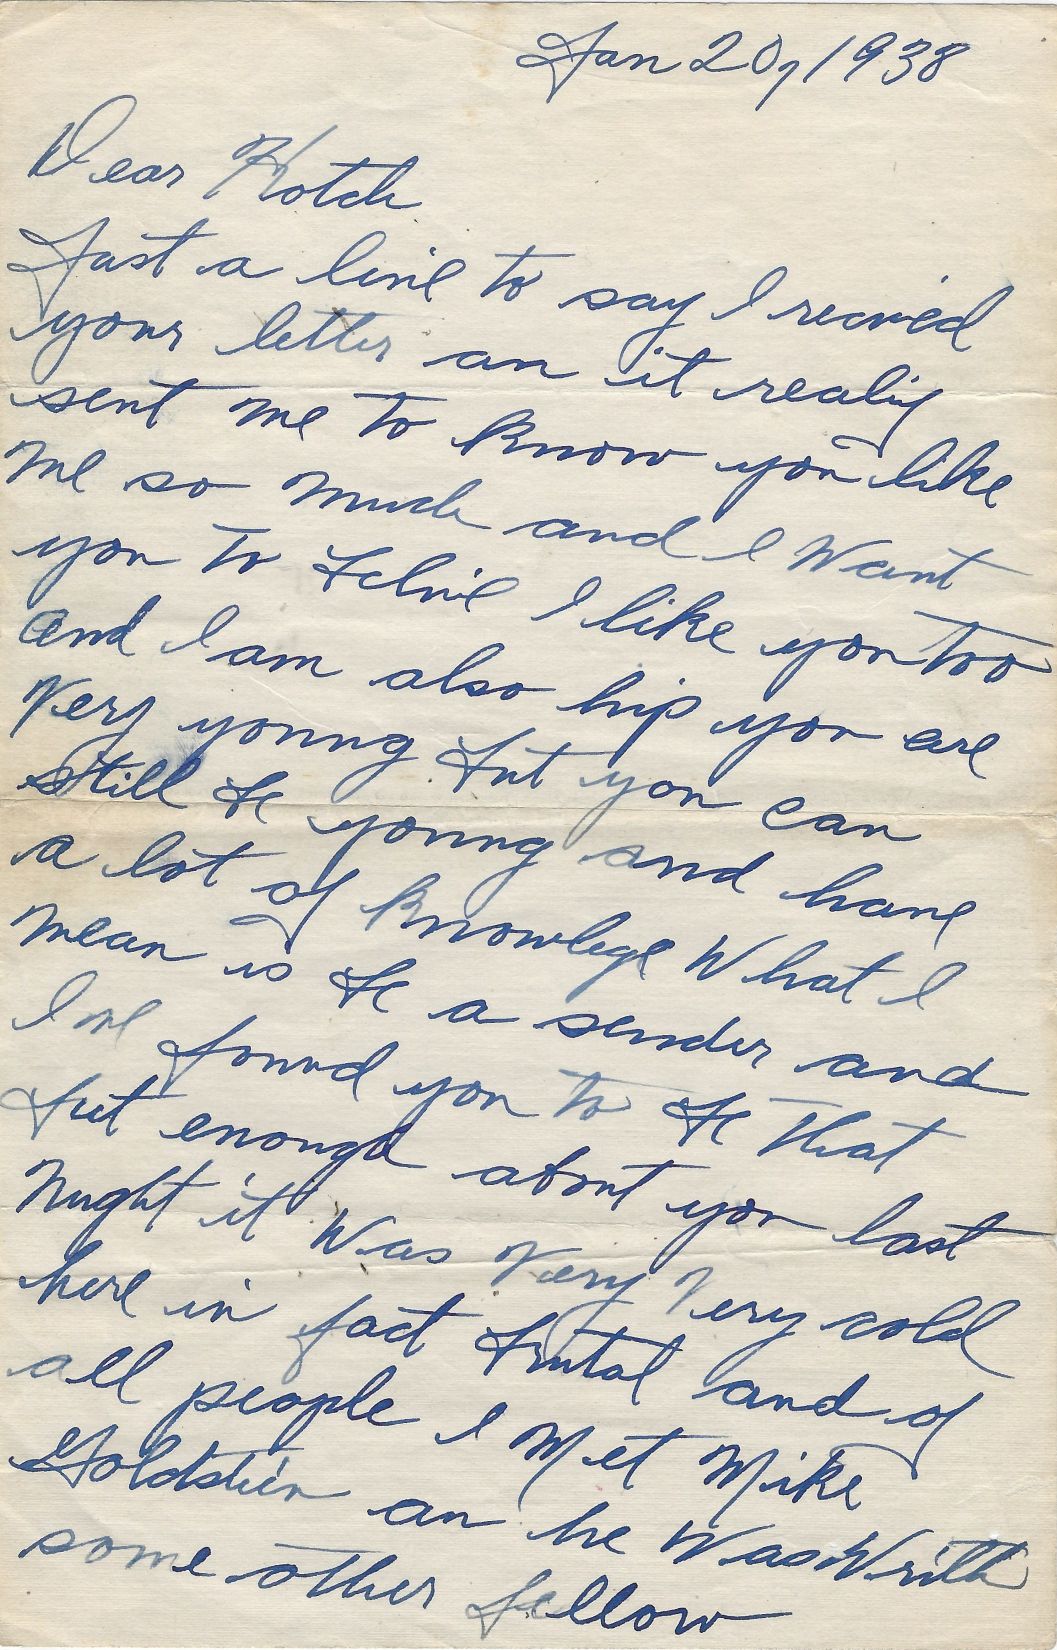 Jan 20, 1938
Dear Hotch
Just a line to say I recived
your letter an it realiy
sent me to know you like
me so much and I Want
you to belive I like you too
and I am also hip you are
Very young but you can
still be young and have
a lot of knowlege What I
mean is be a sender and
I ve found you to be that
but enough about you last
Night it Was Very Very cold
here in fact brutal and of
all people I Met Mike
Goldstein an he Was With
some other fellow